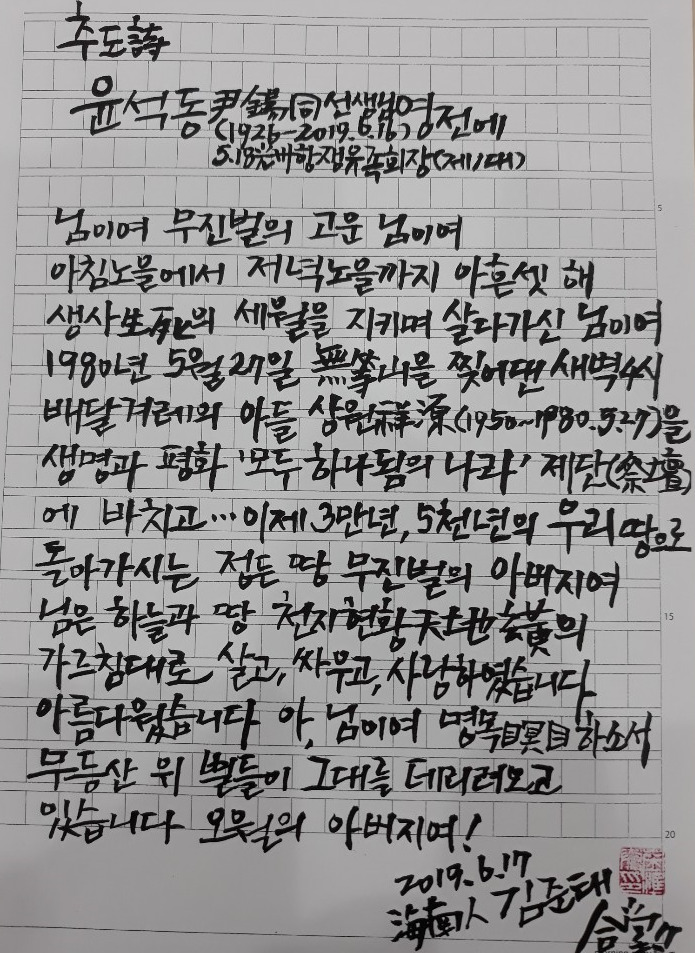 추도詩
윤석동尹錫同선생님영전에
(1926-2019.6.16)
5.18광배항쟁유족회장(제1대)
님이여 무진벌의 고운 님이여
아침노을에서 저녁노을까지 아흔셋 해
생사生死의 세월을 지키며 살다가신 님이여
1980년 5월 27일 無等山을 찢어댄 새벽 4시
배달겨레의 아들 상원祥源(1950~1980.5.27)을
생명과 평화 '모두 하나됨의 나라' 제단(祭壇)
에 바치고… 이제 3만년, 5천년의 우리 땅으로
돌아가시는 접든 땅 무진벌의 아버지여
님은 하늘과 땅 천지현황天地玄黃의
가르침대로 살고, 싸우고, 사랑하였습니다
아름다웠습니다 아, 님이여 명목瞑目하소서
무등산 위 별들이 그대를 데리러보고
있습니다 오윌의 아버지여!
2019.6.17
海南人 김준태
5
15
20